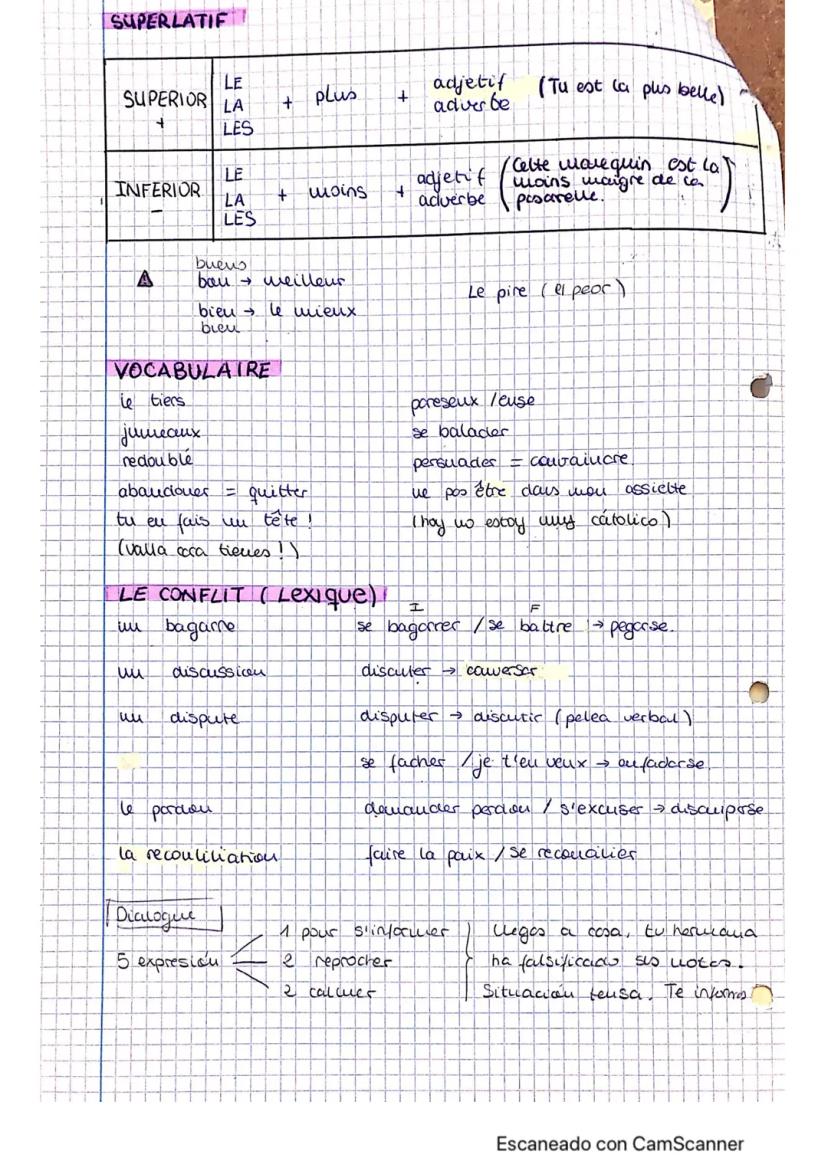 SUPERLATIF
SUPERIOR + LE LA LES + plus + adjetif adverbe (Tu est la plus belle)
INFERIOR - LE LA LES + moins + adjetif adverbe (Cette manequin est la moins maigre de la pasarelle.)
buens
bon → meilleur
Le pire (el peor)
bien → le mieux
bien
VOCABULAIRE
le tiers
pareseux /euse
jumeaux
se balader
redoublé
persuader = convaincre
abandoner = quitter
ne pas être dans mon assiette
tu en fais un tête !
(hoy no estoy muy católico)
(valla cara tienes !)
LE CONFLIT (Lexique)
I F
un bagarre
se bagarrer / se battre → pegarse.
un discussion
discuter → conversar
un dispute
disputer → discutir (pelea verbal)
se facher / je t'en veux → enfadarse.
le pardon
demander perdon / s'excuser → disculparse
la reconciliation
faire la paix / se reconcilier
Dialogue
5 expresión
1 pour s'informer
2 reprocher
2 calmer
llegas a casa, tu hermana
ha falsificado sus notas.
Situación tensa. Te informas
Escaneado con CamScanner